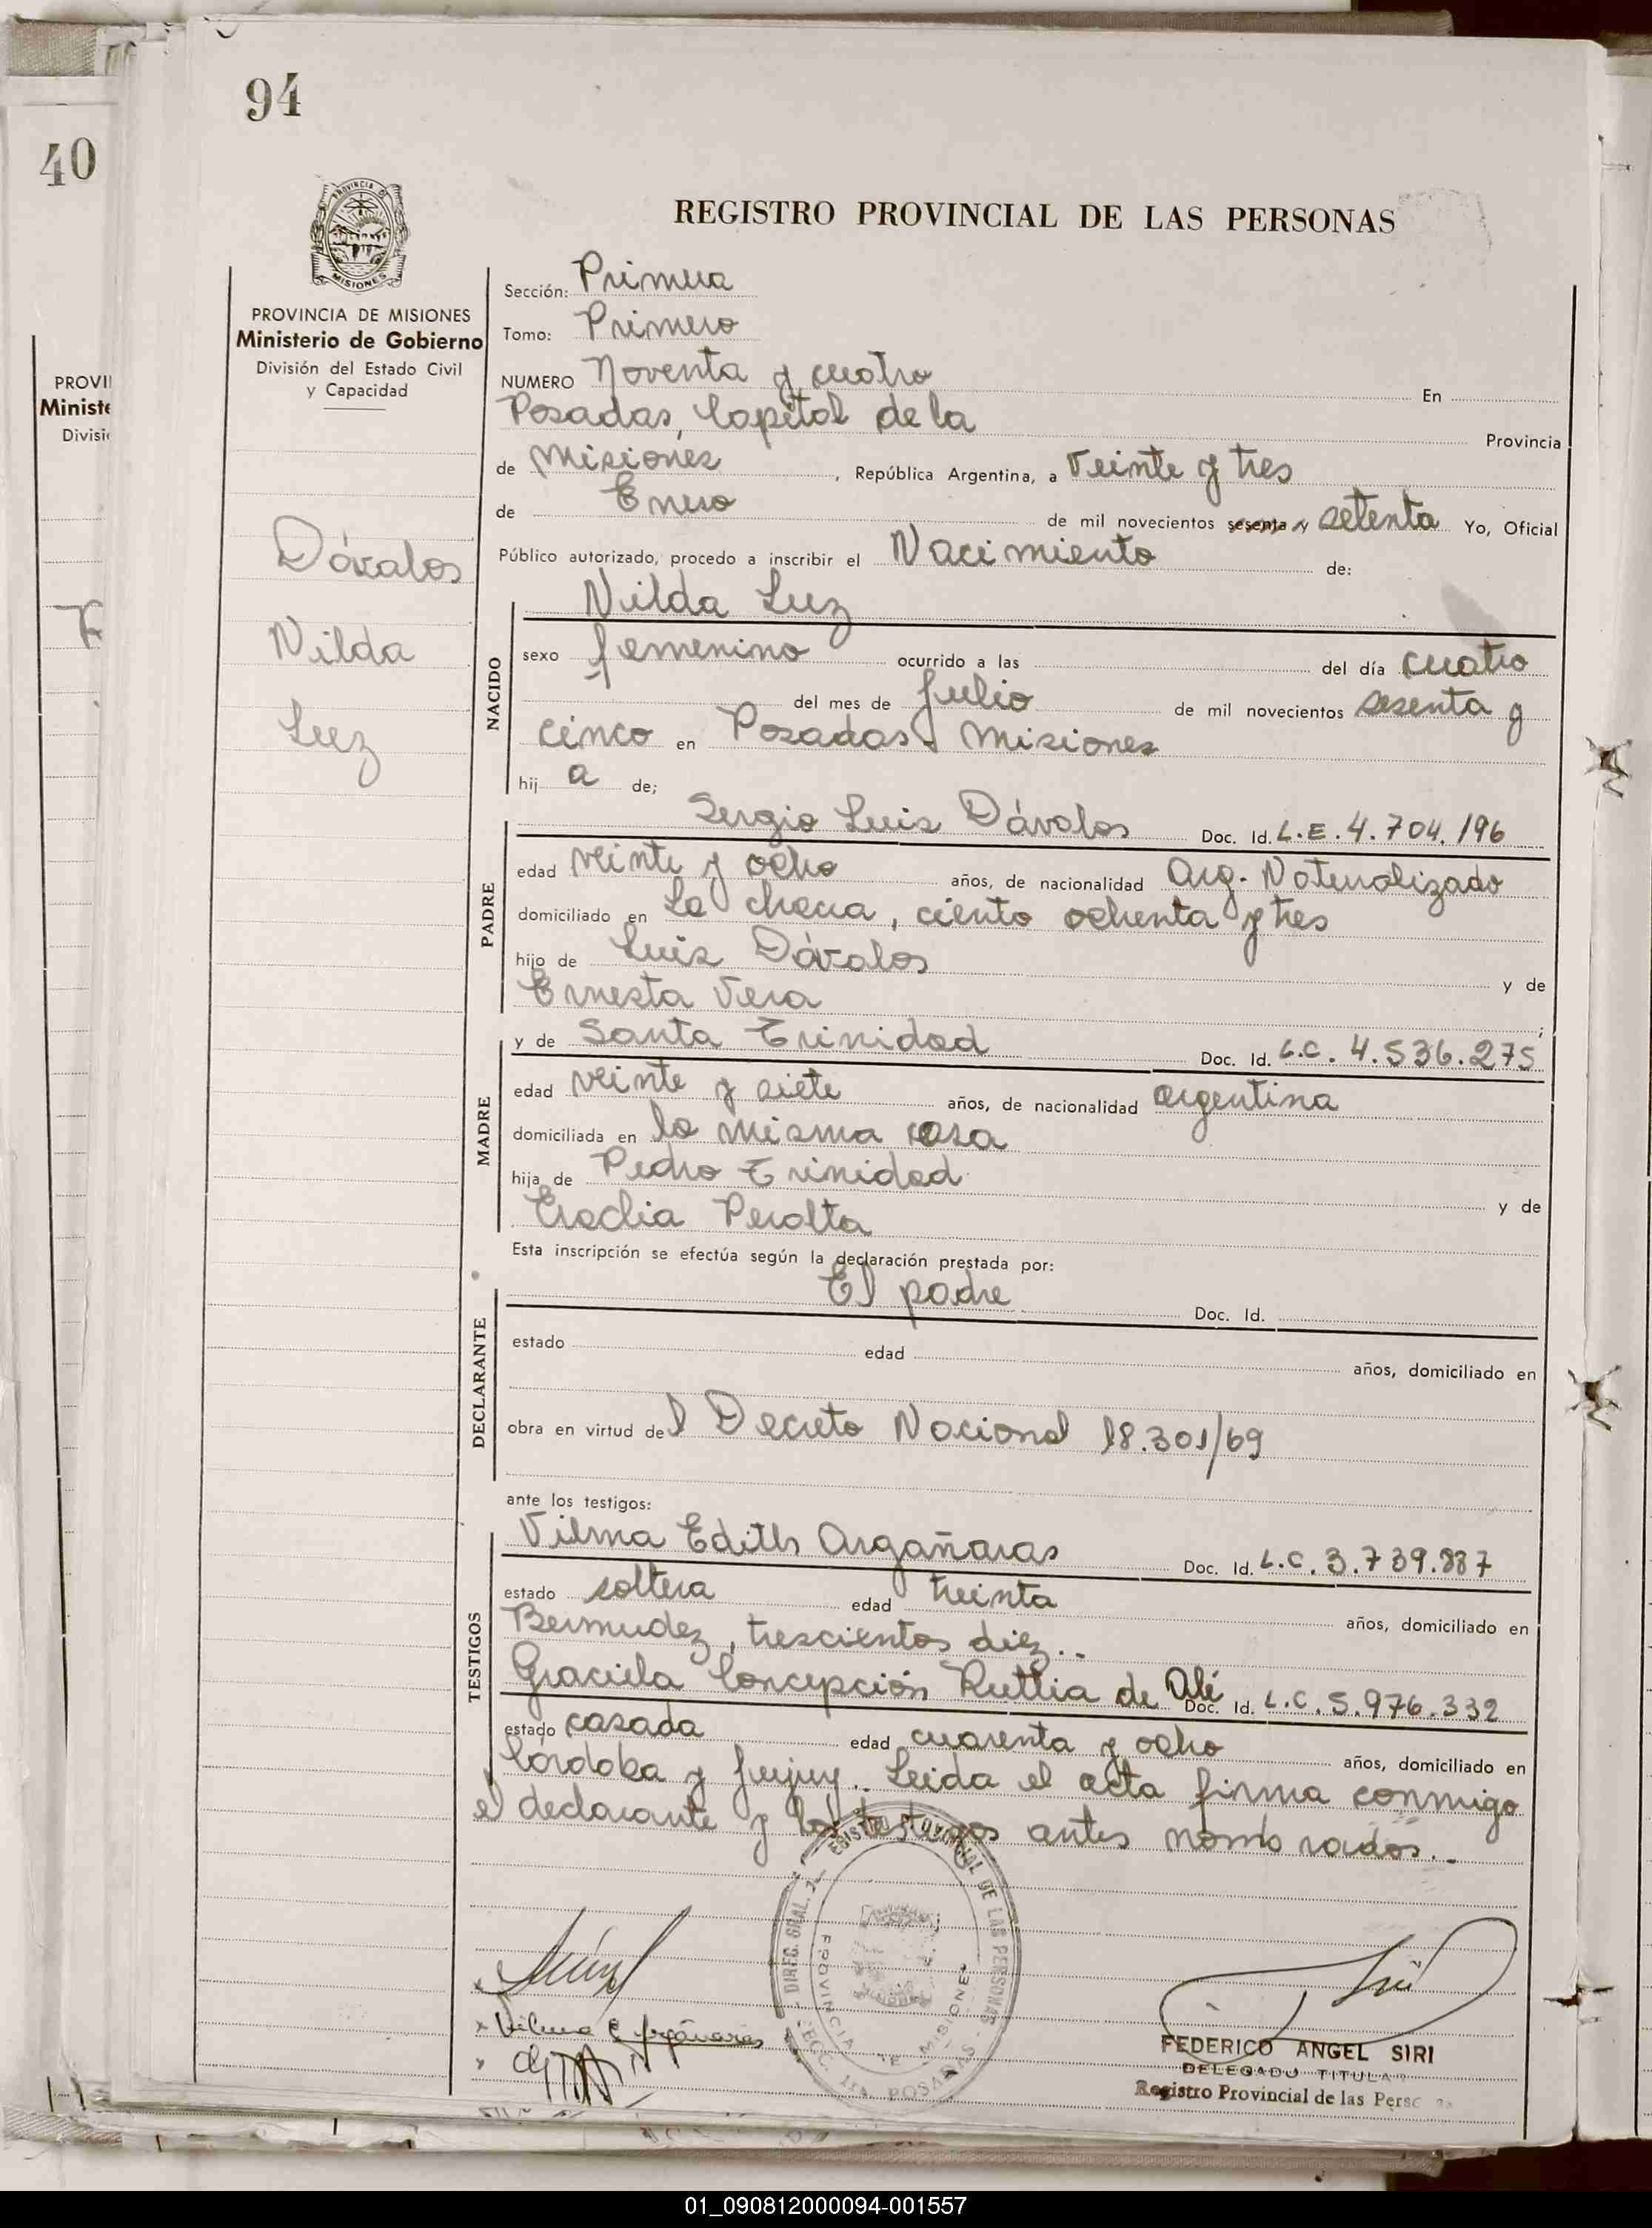 94
40
PROVINCIA DE MISIONES
REGISTRO PROVINCIAL DE LAS PERSONAS
PROVINCIA DE MISIONES
Ministerio de Gobierno
División del Estado Civil
y Capacidad
Dávalos
Nilda
Luz
Sección: Primera
Tomo: Primero
NUMERO Noventa y cuatro En
Posadas, Capital de la Provincia
de Misiones, República Argentina, a Veinte y tres
de Enero de mil novecientos sesenta y setenta Yo, Oficial
Público autorizado, procedo a inscribir el Nacimiento de:
NACIDO
Nilda Luz
sexo femenino ocurrido a las del día cuatro
del mes de Julio de mil novecientos sesenta y
cinco en Posadas. Misiones
hij a de;
PADRE
Sergio Luis Dávalos Doc. Id. L.E. 4.704.196
edad veinte y ocho años, de nacionalidad Arg. Naturalizado
domiciliado en La checa, ciento ochenta y tres
hijo de Luis Dávalos y de
Ernesta Vera;
MADRE
y de Santa Trinidad Doc. Id. L.C. 4.536.275
edad veinte y siete años, de nacionalidad argentina
domiciliada en la misma casa
hija de Pedro Trinidad y de
Eraclia Peralta
Esta inscripción se efectúa según la declaración prestada por:
DECLARANTE
El padre Doc. Id.
estado edad años, domiciliado en
obra en virtud del Decreto Nacional 18.301/69
ante los testigos:
TESTIGOS
Vilma Edith Argañaras Doc. Id. L.C. 3.739.887
estado soltera edad treinta años, domiciliado en
Bermudez, trescientos diez..
Graciela Concepción Ruttia de Alé Doc. Id. L.C. 5.976.332
estado casada edad cuarenta y ocho años, domiciliado en
Córdoba y Jujuy.. Leida el acta firma conmigo
el declarante y los testigos antes nombrados..
Vilma E Argañaras
FEDERICO ANGEL SIRI
DELEGADO TITULAR
Registro Provincial de las Perso
01_090812000094-001557